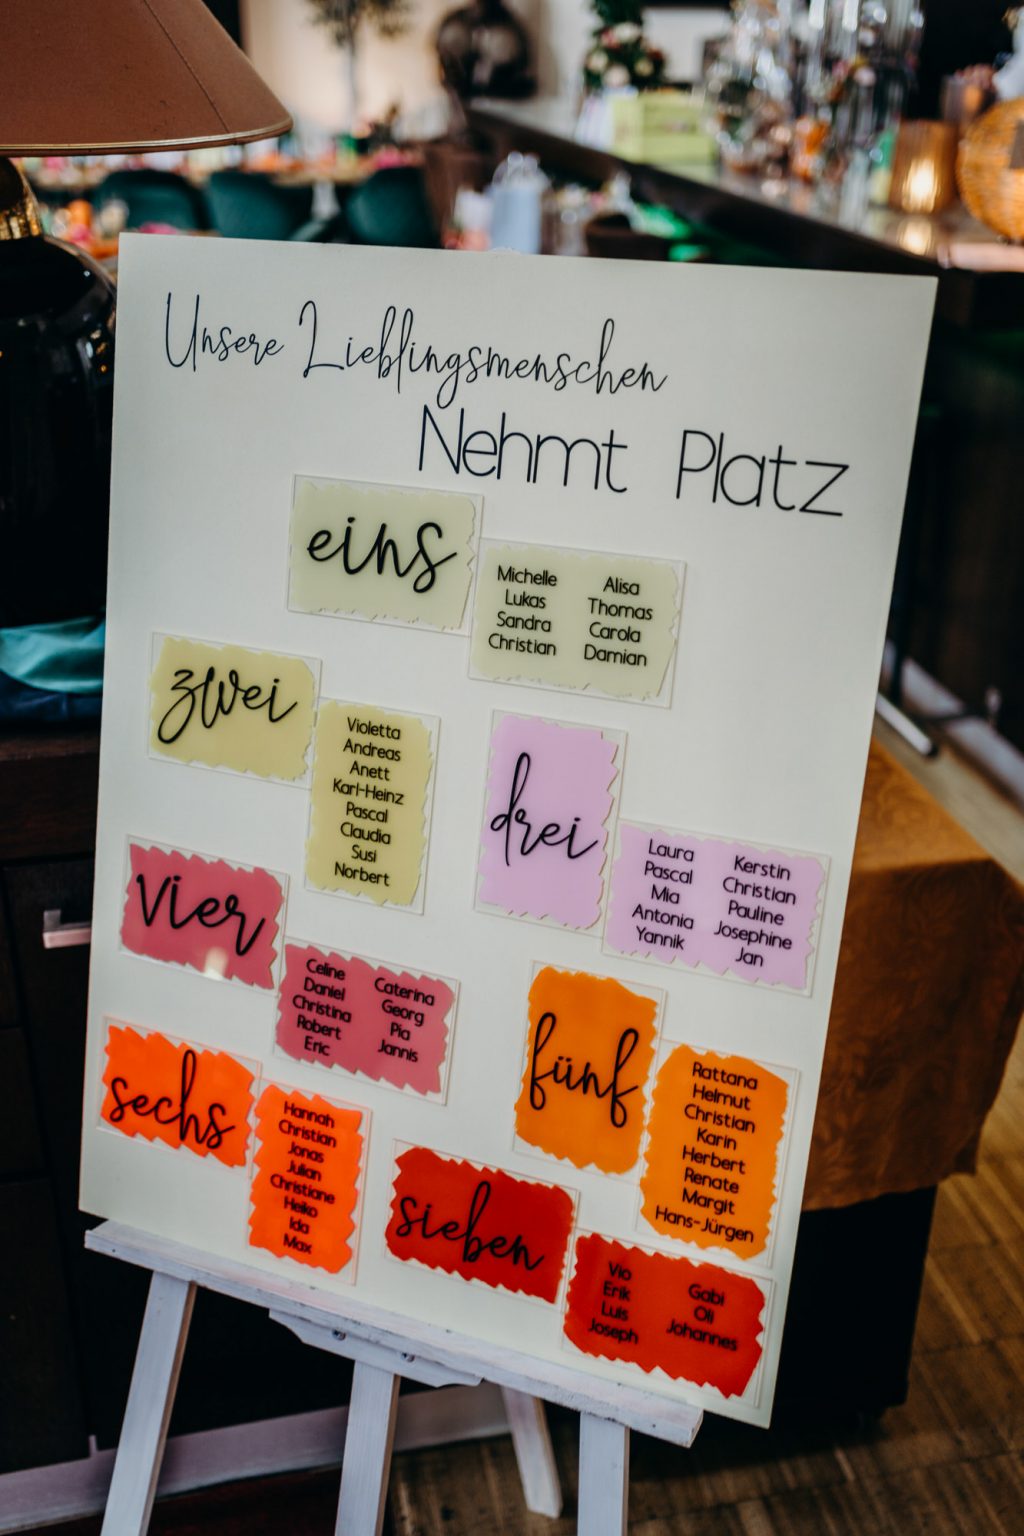 Unsere Lieblingsmenschen
Nehmt Platz
eins
Michelle
Lukas
Sandra
Christian
Alisa
Thomas
Carola
Damian
zwei
Violetta
Andreas
Anett
Karl-Heinz
Pascal
Claudia
Susi
Norbert
drei
Laura
Pascal
Mia
Antonia
Yannik
Kerstin
Christian
Pauline
Josephine
Jan
vier
Celine
Daniel
Christina
Robert
Eric
Caterina
Georg
Pia
Jannis
fünf
Rattana
Helmut
Christian
Karin
Herbert
Renate
Margit
Hans-Jürgen
sechs
Hannah
Christian
Jonas
Julian
Christiane
Heiko
Ida
Max
sieben
Vio
Erik
Luis
Joseph
Gabi
Oli
Johannes